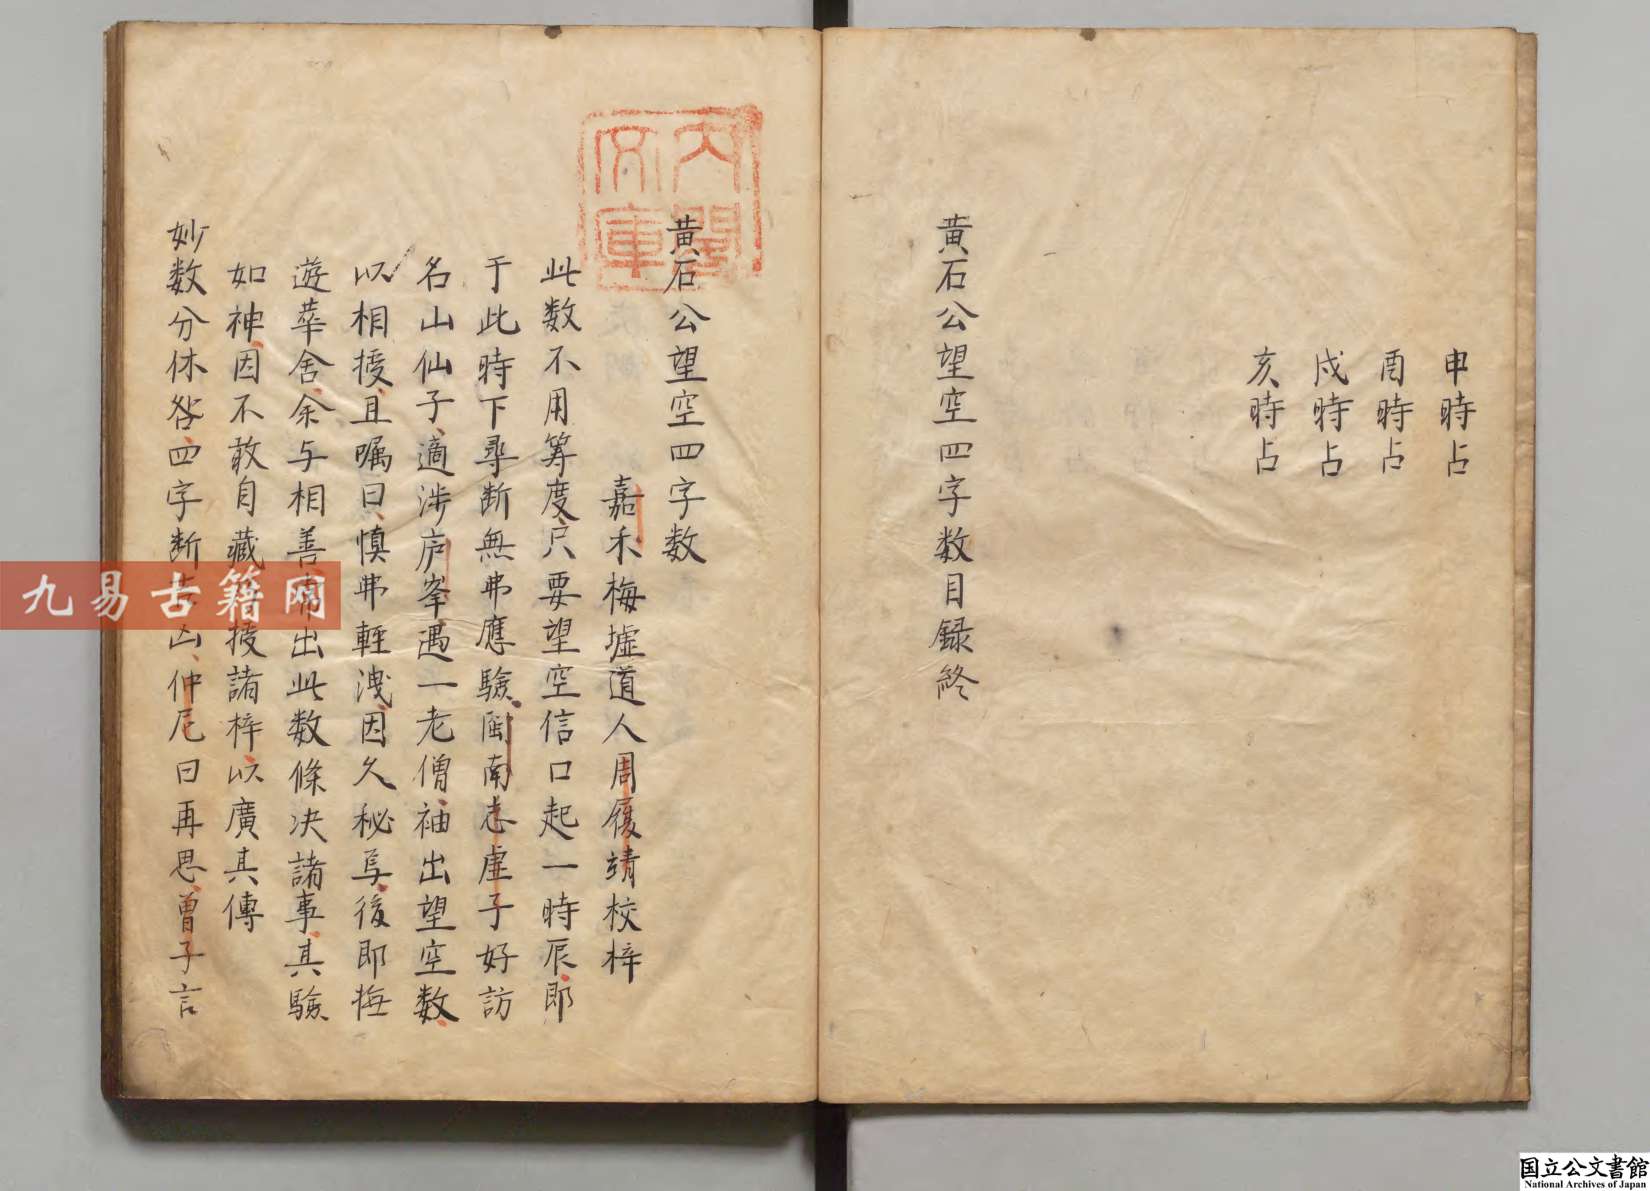 申時占
酉時占
戌時占
亥時占
黃石公望空四字数目録終
黃石公望空四字数
嘉禾梅墟道人周履靖校梓
此数不用筭度只要望空信口起一時辰即
于此時下尋断無弗應驗閩南志虚子好訪
名山仙子適涉庐峯遇一老僧袖出望空数
以相授且嘱曰慎弗輕洩因久秘焉後即
遊華舍余与相善出此数條决諸事其驗
如神因不敢自藏授諸梓以廣其傳
妙数分休咎四字断凶仲尼曰再思曾子言
内閣文庫
九易古籍网
国立公文書館
National Archives of Japan